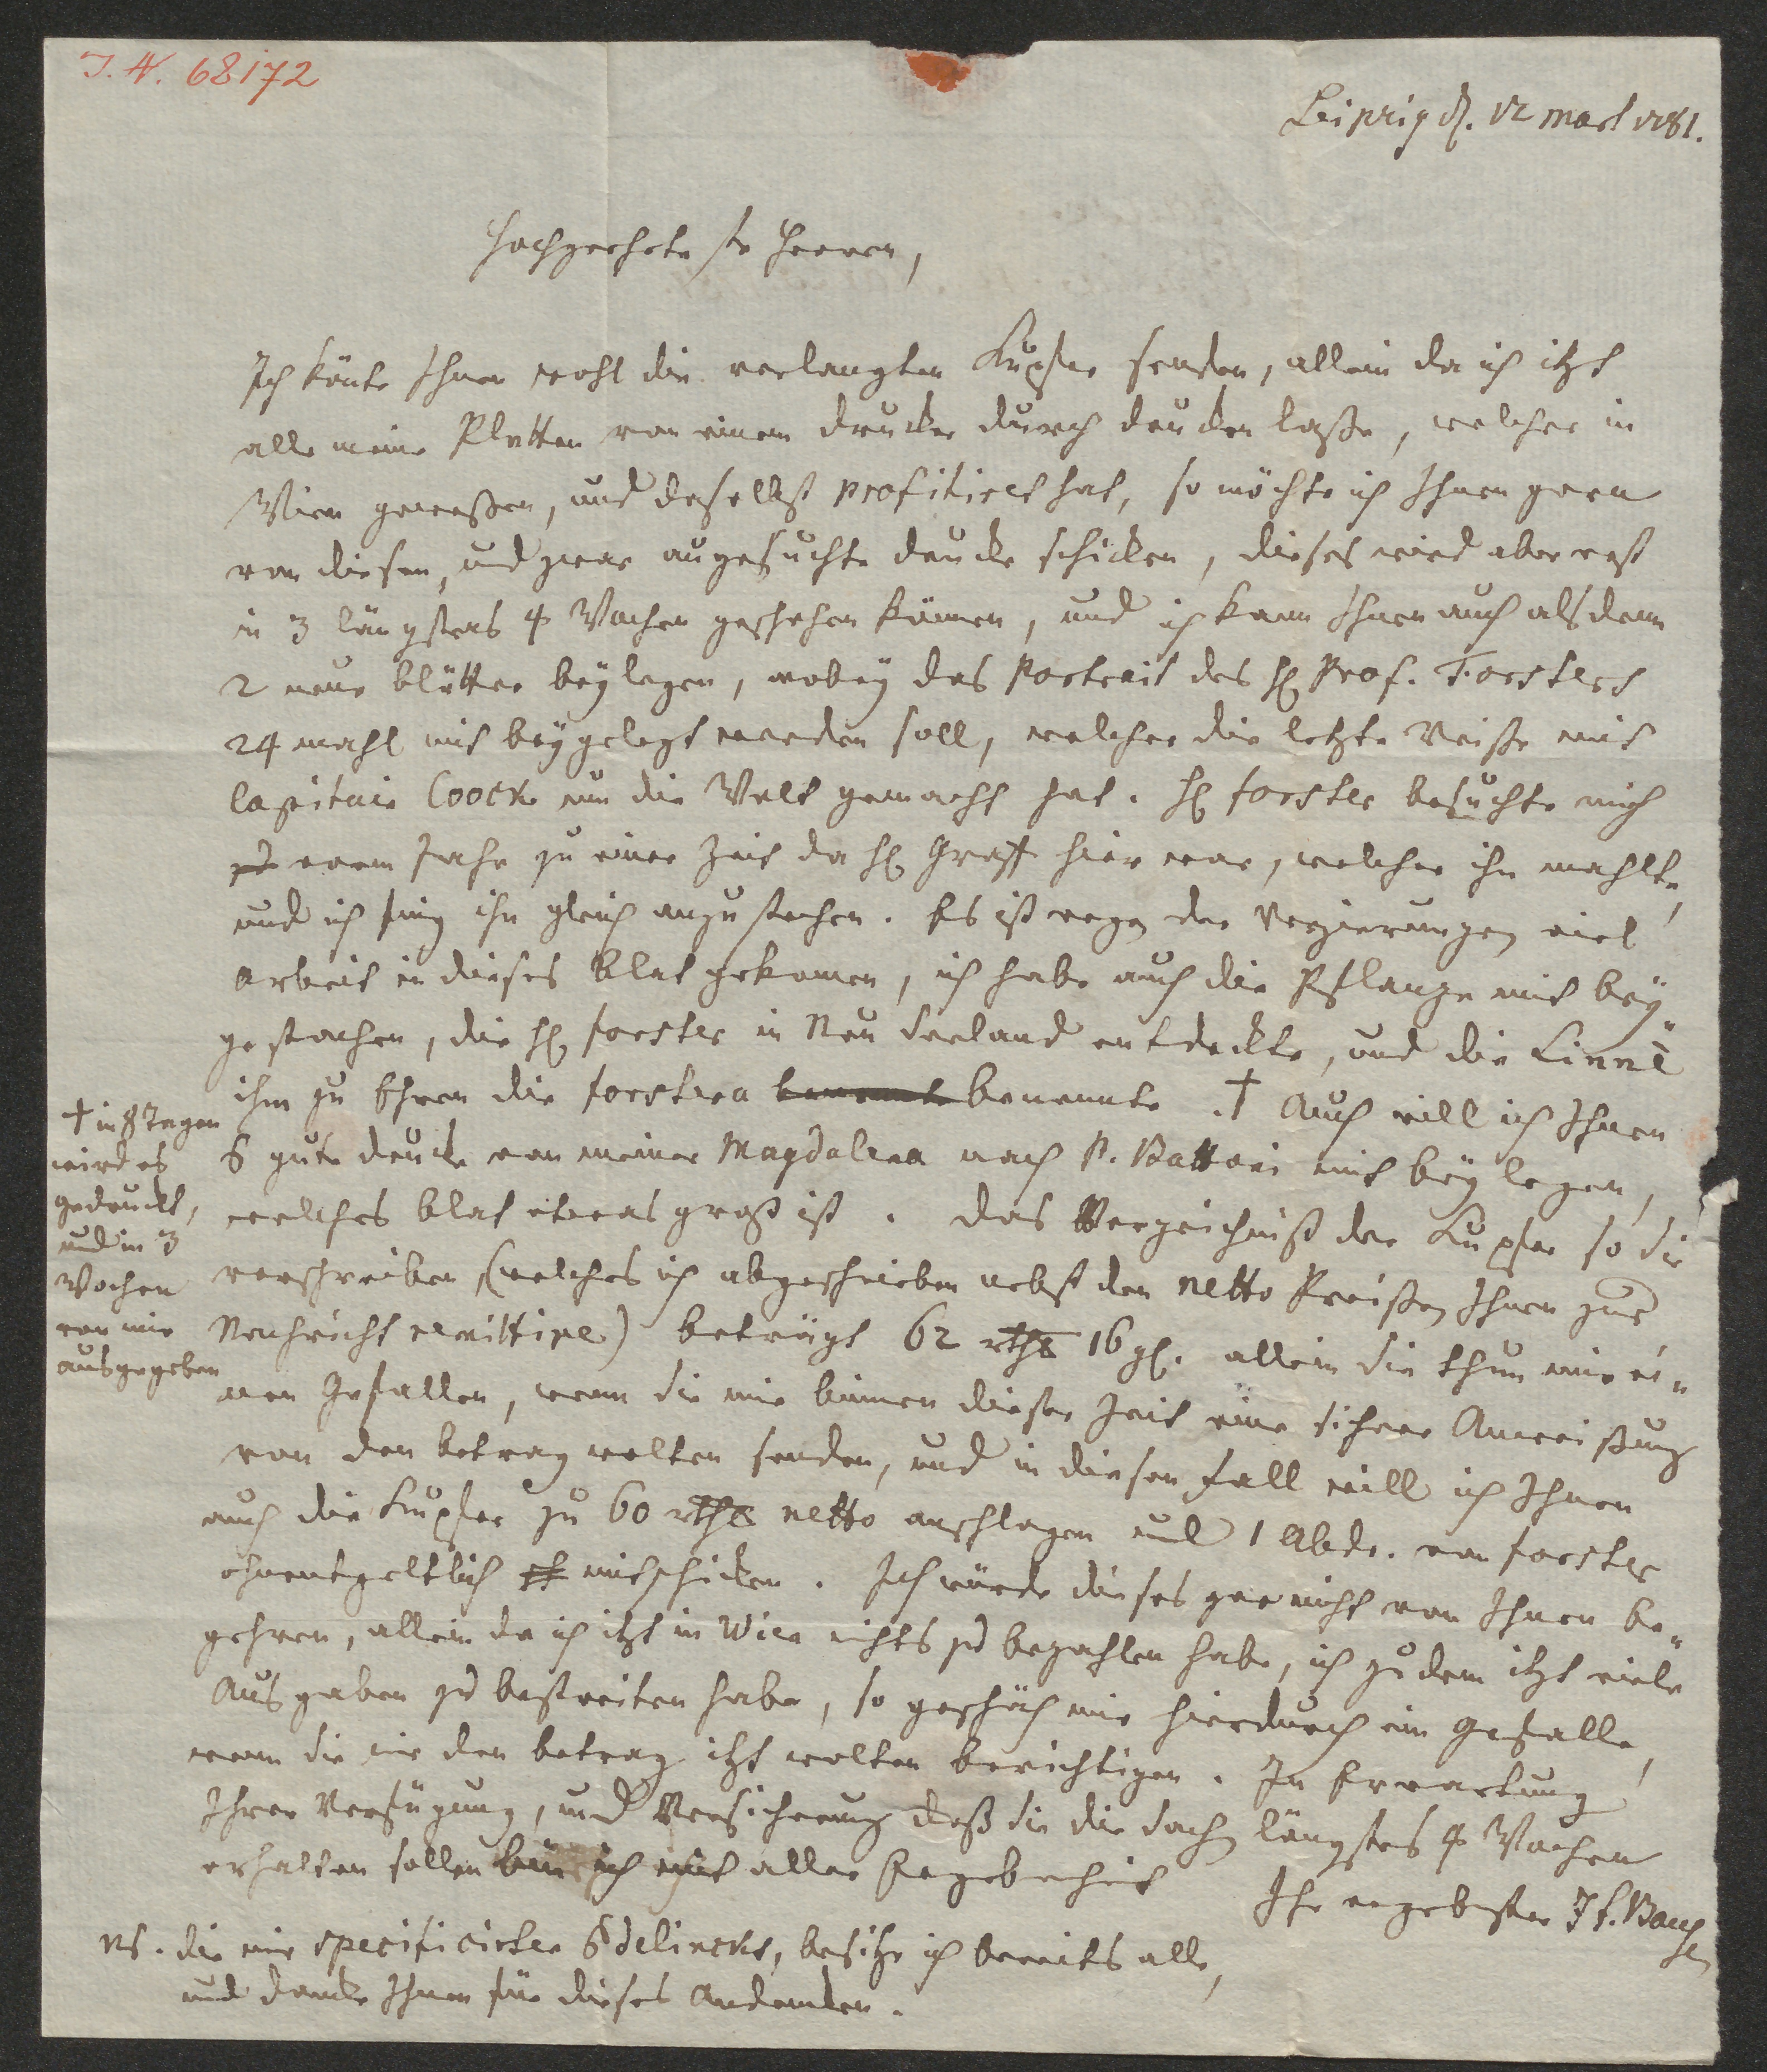 I. N. 68172
Leipzig d. 12 Mart 1781.
Hochgeehrteste Herren,
Ich könte Ihnen wohl die verlangten Kupfer senden, allein da ich itzt
alle meine Platten von einem Drucker durch drucken laße, welcher in
Wien geweßen, und daselbst profitiret hat, so möchte ich Ihnen gern
von diesen, und zwar ausgesuchte Drucke schicken, dieses wird aber erst
in 3 längstens 4 Wochen geschehen können, und ich kann Ihnen auch alsdenn
2 neue Blätter beylegen, wobey das Portrait des H Prof. Forsters
24 mahl mit beygelegt werden soll, welcher die letzte Reiße mit
Capitain Coock um die Welt gemacht hat. H Forster besuchte mich
vorm Jahr zu einer Zeit da H Graff hier war, welcher ihn mahlte,
und ich fing ihn gleich anzustechen. Es ist wegen der Verzierungen viel
Arbeit in dieses Blat gekomen, ich habe auch die Pflanze mit bey„
gestochen, die H Forster in Neu Seeland entdeckte, und die Linné
ihm zu Ehren die Forstera benennte benennte .† Auch will ich Ihnen
6 gute Drucke von meiner Magdalena nach P. Battoni mit bey legen,
welches Blat etwas groß ist. Das Verzeichniß der Kupfer so Sie
verschreiben, (welches ich abgeschrieben nebst den netto Preißen Ihnen zur
Nachricht remittire) beträgt 62 rthl 16 gl. allein Sie thun mir ei„
nen Gefallen, wenn Sie mir binnen dieser Zeit eine sichere Anweißung
von den Betrag wolten senden, und in diesen Fall will ich Ihnen
auch die Kupfer zu 60 rthl netto anschlagen und 1 Abdr. von Forster
ohnentgeltlich mitschicken. Ich würde dieses gar nicht von Ihnen be„
gehren, allein da ich itzt in Wien nichts zu bezahlen habe, ich zu dem itzt viele
Ausgaben zu bestreiten habe, so geschäh mir hierdurch ein Gefalle,
wenn Sie mir den Betrag itzt wolten berichtigen. In Erwartung
Ihrer Verfügung, und Versicherung daß Sie die Sachen längstens 4 Wochen
erhalten sollen bin ich mit aller Ergebenheit
Ihr ergebenster J f. Bause
† in 8 Tagen
wird es
gedruckt,
und in 3
Wochen
von mir
ausgegeben
NS. die mir specificirten Edelincks, besitze ich bereits alle,
und dancke Ihnen für dieses Andencken.